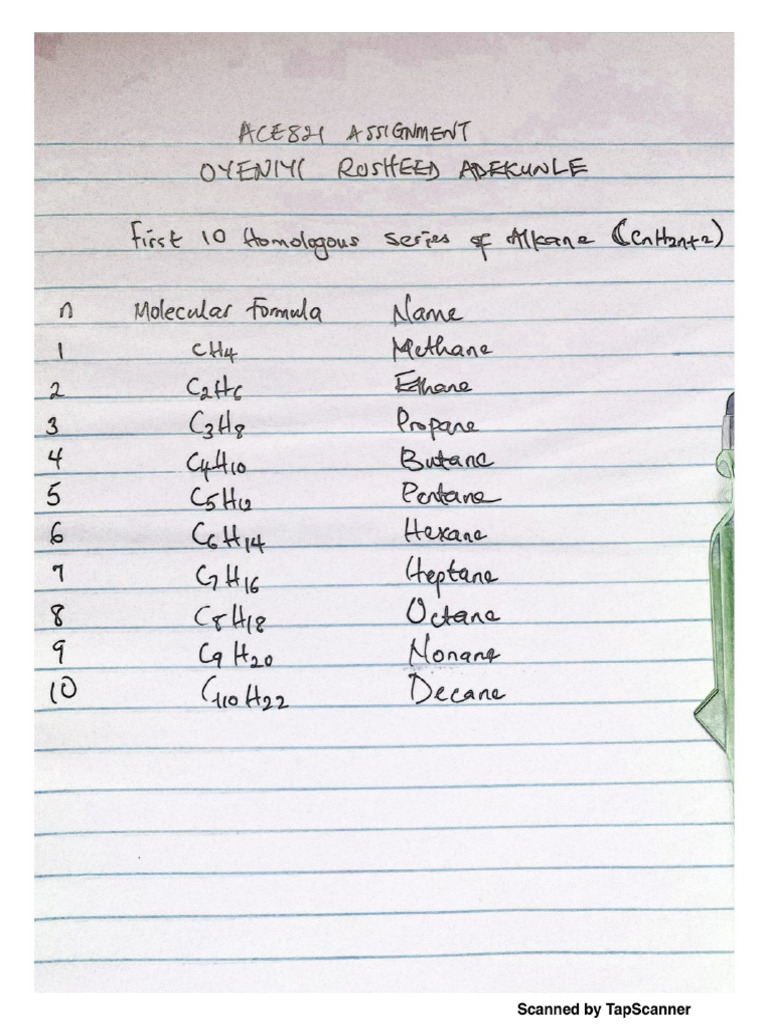 ACE821 ASSIGNMENT
OYENIYI RASHEED ADEKUNLE
First 10 Homologous series of Alkane (CnH2n+2)
n Molecular Formula Name
1 CH4 Methane
2 C2H6 Ethane
3 C3H8 Propane
4 C4H10 Butane
5 C5H12 Pentane
6 C6H14 Hexane
7 C7H16 Heptane
8 C8H18 Octane
9 C9H20 Nonane
10 C110H22 Decane
Scanned by TapScanner